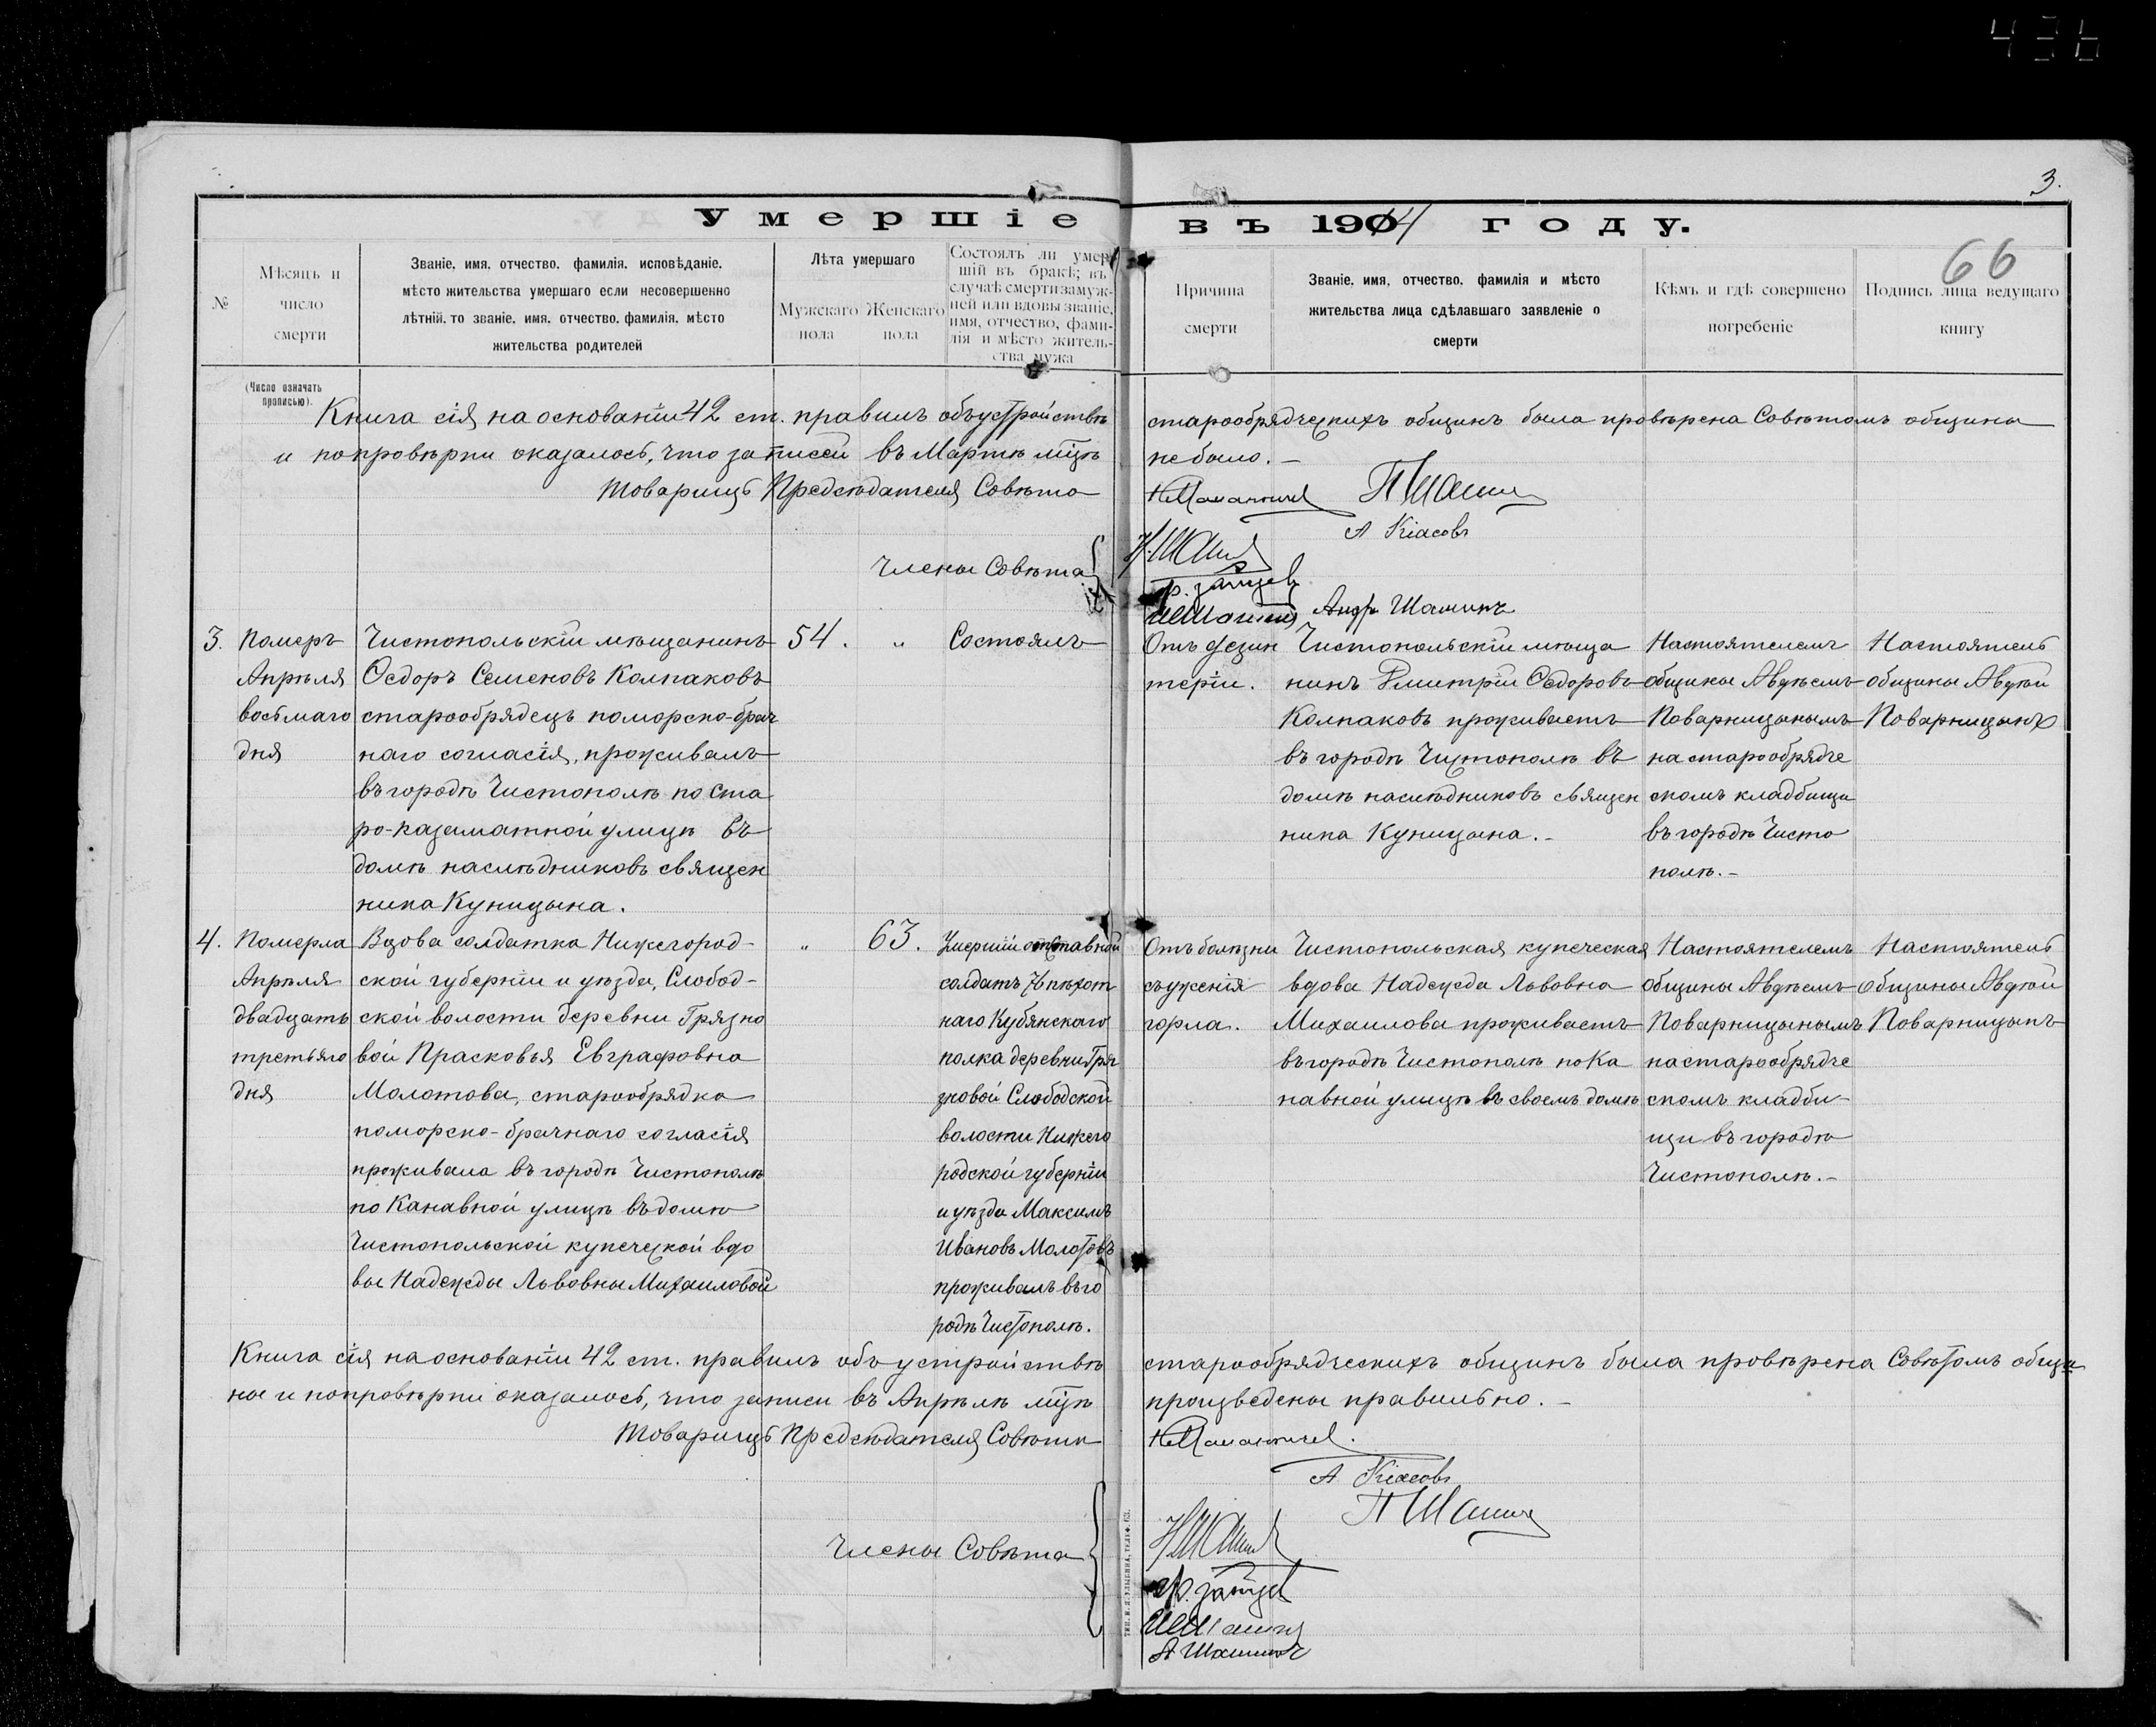 436
3.
Умершіе въ 1914 году.
66
№
Мѣсяцъ и
число
смерти
(Число означать
прописью).
Званіе, имя, отчество, фамилія, исповѣданіе,
мѣсто жительства умершаго если несовершенно
лѣтній, то званіе, имя, отчество, фамилія, мѣсто
жительства родителей
Лѣта умершаго
Мужскаго
пола
Женскаго
пола
Состоялъ ли умер
шій въ бракѣ; въ
случаѣ смерти замуж-
ней или вдовы званіе,
имя, отчество, фами-
лія и мѣсто житель-
ства мужа
Причина
смерти
Званіе, имя, отчество, фамилія и мѣсто
жительства лица сдѣлавшаго заявленіе о
смерти
Кѣмъ и гдѣ совершено
погребеніе
Подпись лица ведущаго
книгу
Книга сія на основаніи 42 ст. правилъ объ устройствѣ старообрядческихъ общинъ была провѣрена Совѣтомъ общины
и по провѣрки оказалось, что записей въ Мартѣ мцѣ не было.-
Товарищъ Предсѣдателя Совѣта
А Кіасовъ
Члены Совѣта
Андр Шашинъ
3.
Померъ
Апрѣля
восьмаго
дня
Чистопольскій мѣщанинъ
Ѳедоръ Семеновъ Колпаковъ
старообрядецъ поморско-брач
наго согласія, проживалъ
въ городѣ Чистополѣ по Ста
ро-казаматной улицѣ въ
домѣ наслѣдниковъ священ
ника Куницына.
54.
"
Состоялъ
Отъ
теріи.
Чистопольскій мѣща
нинъ Дмитрій Ѳедоровъ
Колпаковъ проживаетъ
въ городѣ Чистополѣ въ
домѣ наслѣдниковъ священ
ника Куницына.-
Настоятелемъ
общины Авдѣемъ
Поварницынымъ
на старообрядче
скомъ кладбищи
въ городѣ Чисто
полѣ.-
Настоятель
общины Авдѣй
Поварницынъ
4.
Померла
Апрѣля
двадцать
третьяго
дня
Вдова солдатка Нижегород-
ской губерніи и уѣзда, Слобод-
ской волости деревни Грязно
вой Прасковья Евграфовна
Молотова, старообрядка
поморско-брачнаго согласія
проживала въ городѣ Чистополѣ
по Канавной улицѣ въ домѣ
Чистопольской купеческой вдо
вы Надежды Львовны Михаиловой
"
63.
Умершій отставной
солдатъ пѣхот
наго Кубянскаго
полка деревни Гря
зновой Слободской
волости Нижего
родской губерніи
и уѣзда Максимъ
Ивановъ Молотовъ
проживалъ въ го
родѣ Чистополѣ.
Отъ болѣзни
съуженія
горла.
Чистопольская купеческая
вдова Надежда Львовна
Михаилова проживаетъ
въ городѣ Чистополѣ по Ка
навной улицѣ въ своемъ домѣ
Настоятелемъ
общины Авдѣемъ
Поварницынымъ
на старообрядче
скомъ кладби-
щи въ городѣ
Чистополѣ.-
Настоятель
общины Авдѣй
Поварницынъ
Книга сія на основаніи 42 ст. правилъ объ устройствѣ старообрядческихъ общинъ была провѣрена Совѣтомъ общи
ны и по провѣрки оказалось, что записи въ Апрѣлѣ мцѣ произведены правильно.-
Товарищъ Предсѣдателя Совѣта
А Кіасовъ
П Шашин
Члены Совѣта
А Шашинъ